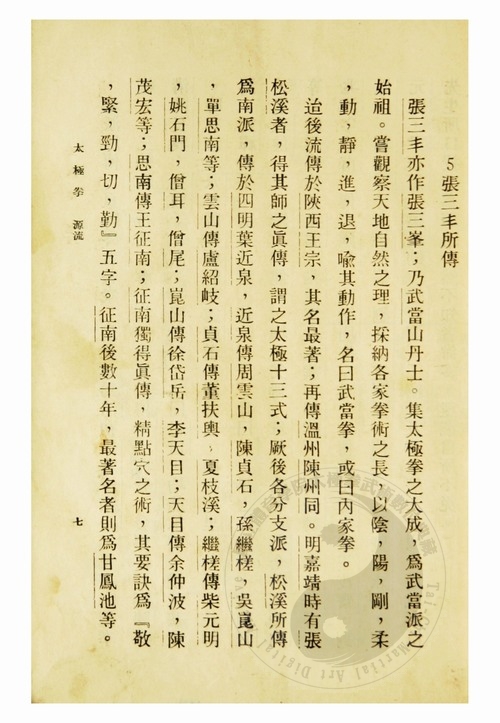 5張三丰所傳
張三丰亦作張三峯；乃武當山丹士。集太極拳之大成，爲武當派之
始祖。嘗觀察天地自然之理，採納各家拳術之長，以陰，陽，剛，柔
，動，靜，進，退，喩其動作，名曰武當拳，或曰內家拳。
迨後流傳於陝西王宗，其名最著；再傳溫州陳州同。明嘉靖時有張
松溪者，得其師之眞傳，謂之太極十三式；厥後各分支派，松溪所傳
爲南派，傳於四明葉近泉，近泉傳周雲山，陳貞石，孫繼槎，吳崑山
，單思南等；雲山傳盧紹岐；貞石傳董扶輿，夏枝溪；繼槎傳柴元明
，姚石門，僧耳，僧尾；崑山傳徐岱岳，李天目；天目傳余仲波，陳
茂宏等；思南傳王征南；征南獨得眞傳，精點穴之術，其要訣爲『敬
，緊，勁，切，勤』五字。征南後數十年，最著名者則爲甘鳳池等。
太極拳 源流
七
Martial Art Digital